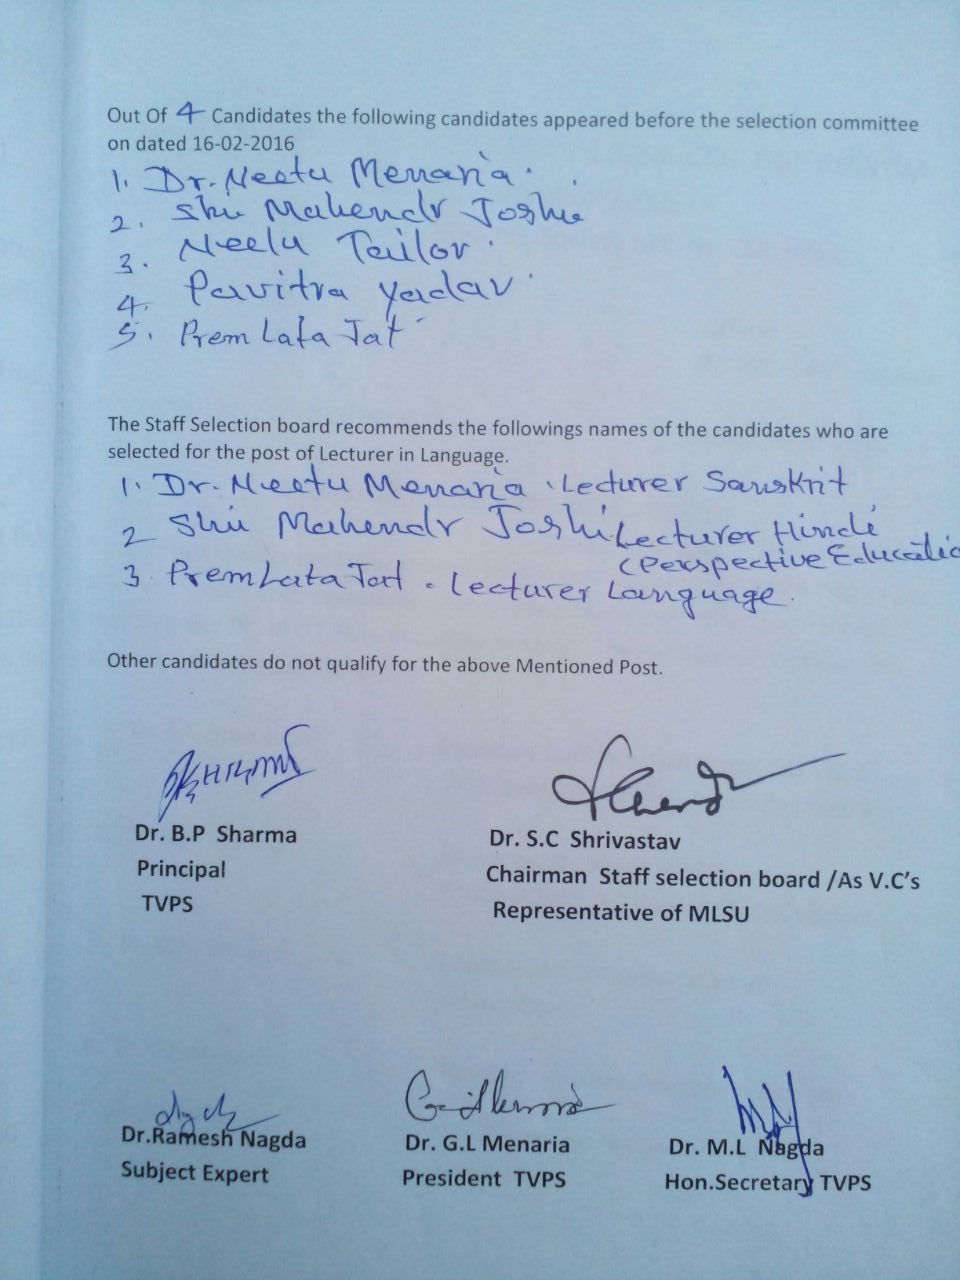 Out Of 4 Candidates the following candidates appeared before the selection committee
on dated 16-02-2016
1. Dr. Neetu Menaria.
2. Shri Mahendr Joshi
3. Neelu Tailor.
4. Pavitra Yadav.
5. Prem Lata Jat
The Staff Selection board recommends the followings names of the candidates who are
selected for the post of Lecturer in Language.
1. Dr. Neetu Menaria . Lecturer Sanskrit
2 Shri Mahendr Joshi Lecturer Hindi
(Perspective Educatio
3 Prem Lata Jat . Lecturer Language.
Other candidates do not qualify for the above Mentioned Post.
Dr. B.P Sharma
Principal
TVPS
Dr. S.C Shrivastav
Chairman Staff selection board /As V.C's
Representative of MLSU
Dr.Ramesh Nagda
Subject Expert
Dr. G.L Menaria
President TVPS
Dr. M.L Nagda
Hon.Secretary TVPS